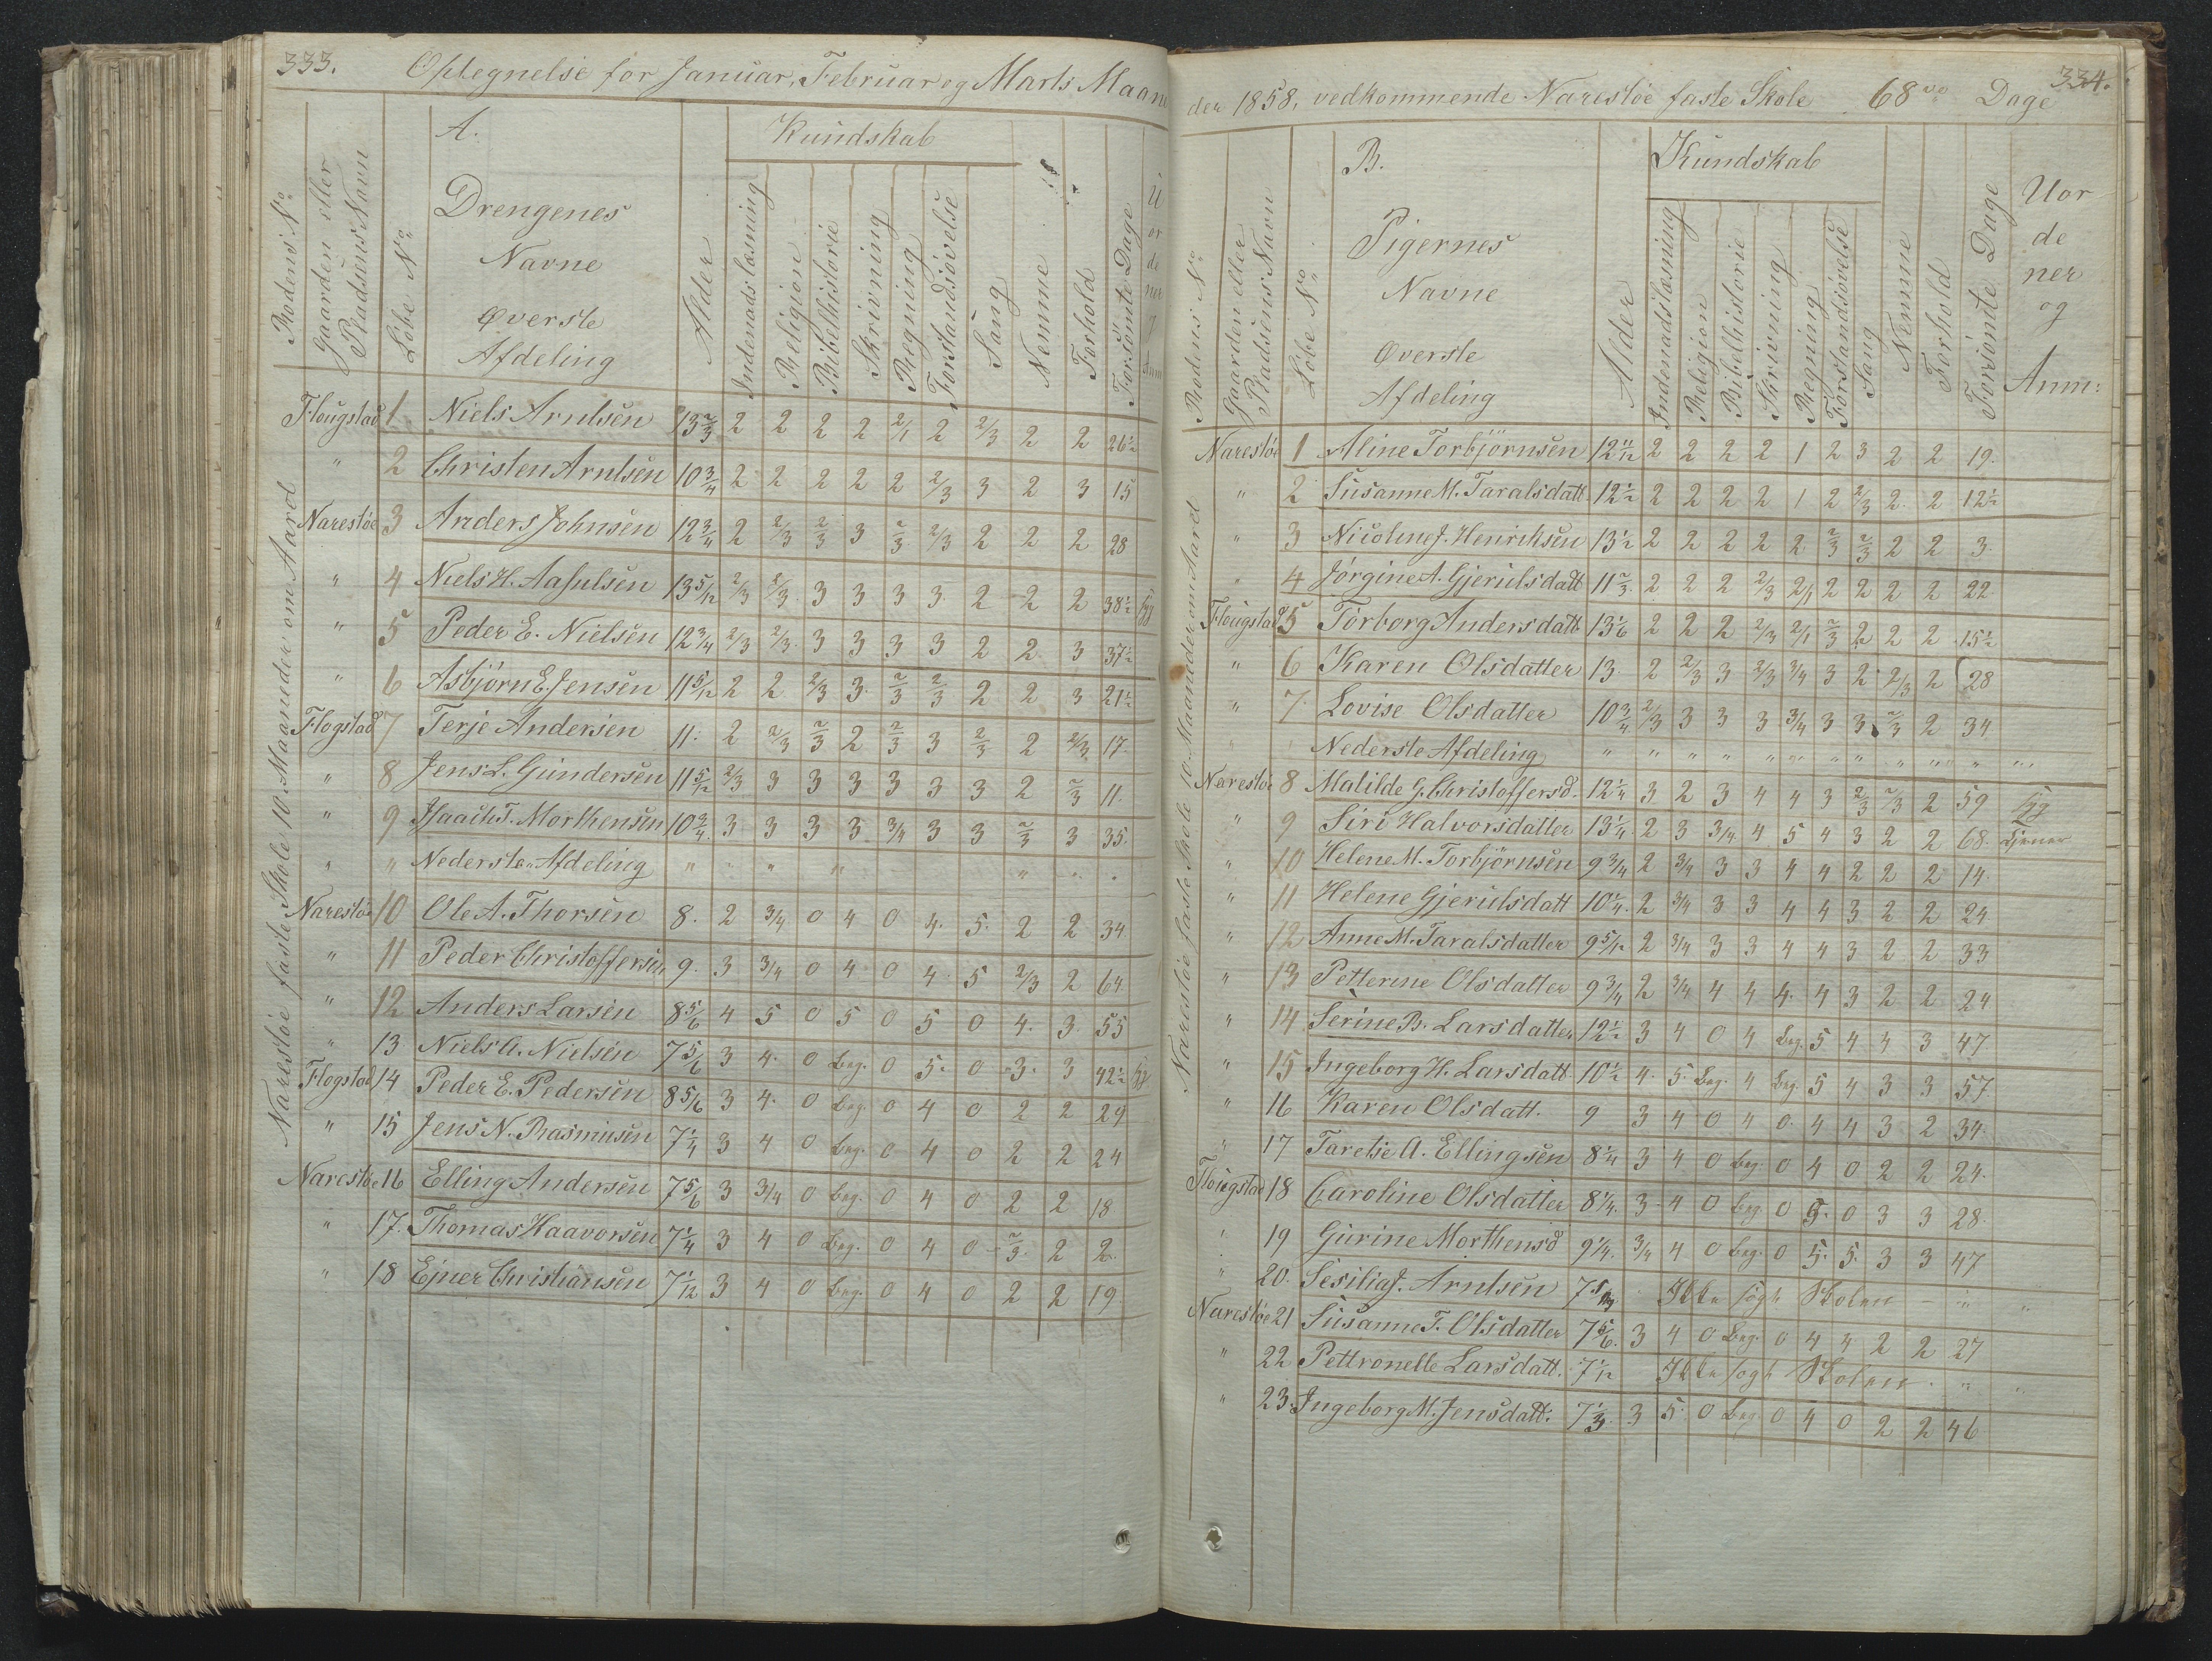 333.
Optegnelse for Januar, Februar og Marts Maane
A.
Kundskab
Rodens No
Gaarden eller Pladsens Navn
Løbe No
Drengenes Navne Øverste Afdeling
Alder
Indenads læsning
Religion
Bibelhistorie
Skrivning
Regning
Forstandsøvelse
Sang
Nemme
Forhold
Forsömte Dage
Narestøe faste Skole 10 Maaneder om Aaret
Flougstad 1 Niels Arntsen 13 2/3 2 2 2 2 2/1 2 2/3 2 2 26½
" 2 Christen Arntsen 10 3/4 2 2 2 2 2 2/3 3 2 3 15
Narestøe 3 Anders Johnsen 12 3/4 2 2/3 2/3 3 2/3 2/3 2 2 2 28
" 4 Niels H. Aasulsen 13 5/12 2/3 2/3 3 3 3 3 2 2 2 38½ syg
" 5 Peder E. Nielsen 12 3/4 2/3 2/3 3 3 3 3 2 2 3 37½
" 6 Asbjörn E. Jensen 11 5/12 2 2 2/3 3 2/3 2/3 2 2 3 21½
Flogstad 7 Terje Andersen 11 2 2/3 2/3 2 2/3 3 2/3 2 2/3 17
" 8 Jens L. Gundersen 11 5/12 2/3 3 3 3 3 3 3 2 2/3 11
" 9 Isaach T. Morthensen 10 3/4 3 3 3 3 3/4 3 3 2/3 3 35
" " Nederste Afdeling " " " " "
Narestöe 10 Ole A. Thorsen 8. 2 3/4 0 4 0 4 5 2 2 34
" 11 Peder Christoffersen 9. 3 3/4 0 4 0 4 5 2/3 2 64
" 12 Anders Larsen 8 5/6 4 5 0 5 0 5 0 4 3 55
" 13 Niels A. Nielsen 7 5/6 3 4 0 Beg. 0 5 0 3 3 42½ syg
Flogstad 14 Peder E. Pedersen 8 5/6 3 4 0 Beg. 0 4 0 2 2 29
" 15 Jens N. Rasmusen 7 1/4 3 4 0 Beg. 0 4 0 2 2 24
Narestöe 16 Elling Andersen 7 5/6 3 3/4 0 Beg. 0 4 0 2 2 18
" 17. Thomas Haavorsen 7 1/4 3 4 0 Beg. 0 4 0 2/3 2 2
" 18 Ejner Christiansen 7 1/12 3 4 0 Beg. 0 4 0 2 2 19
334.
der 1858, vedkommende Narestöe faste Skole 68 Dage
B.
Kundskab
Rodens No
Gaarden eller Pladsens Navn
Löbe No
Pigernes Navne Øverste Afdeling
Alder
Indenadslæsning
Religion
Bibelhistorie
Skrivning
Regning
Forstandsövelse
Sang
Nemme
Forhold
Forsömte Dage
Uor de ner og Anm:
Narestöe faste Skole 10 Maaneder om Aaret
Narestöe 1 Aline Torbjörnsen 12 11/12 2 2 2 2 1 2 3 2 2 19.
" 2 Susanne M. Taralsdatt. 12½ 2 2 2 2 1 2 2/3 2 2 12½
" 3 Nicoline J. Henriksen 13½ 2 2 2 2 2 2/3 2/3 2 2 3.
" 4 Jörgine A. Gjerulsdatt 11 2/3 2 2 2 2/3 2/1 2 2 2 2 22
Flougstad 5 Torborg Andersdatt 13 1/6 2 2 2 2/3 2/1 2/3 2 2 2 15½
" 6 Karen Olsdatter 13. 2 2/3 3 2/3 3/4 3 2 2/3 2 28
" 7 Lovise Olsdatter 10 3/4 2/3 3 3 3 3/4 3 3 2/3 2 34
Nederste Afdeling " " " " " " " " " " "
Narestöe 8 Matilde G. Christoffersd. 12 1/4 3 2 3 4 4 3 2/3 2/3 2 59 syg
" 9 Siri Halvorsdatter 13 1/4 2 3 3/4 4 5 4 3 2 2 68. tjener
" 10 Helene M. Torbjörnsen 9 3/4 2 3/4 3 3 4 4 2 2 2 14
" 11 Helene Gjerulsdatt 10 1/4 2 3/4 3 3 4 4 3 2 2 24
" 12 Anne M. Taralsdatter 9 5/12 2 3/4 3 3 4 4 3 2 2 33
" 13 Petterine Olsdatter 9 3/4 2 3/4 4 4 4 4 3 2 2 24
" 14 Serine B. Larsdatter 12½ 3 4 0 4 Beg. 5 4 4 3 47
" 15 Ingeborg H. Larsdatt. 10½ 4 5 Beg. 4 Beg. 5 4 3 3 57
" 16 Karen Olsdatt. 9 3 4 0 4 0 4 4 3 2 34
" 17 Taretje A. Ellingsen 8 1/4 3 4 0 Beg. 0 4 0 2 2 24
Flougstad 18 Caroline Olsdatter 8 1/4 3 4 0 Beg. 0 5 0 3 3 28
" 19 Gurine Morthensd 9 1/4 3/4 4 0 Beg. 0 5 5 3 3 47
" 20. Sesilia J. Arntsen Ikke søgt Skolen " "
Narestöe 21 Susanne T. Olsdatter 7 5/6 3 4 0 Beg. 0 4 4 2 2 27
" 22 Pettronelle Larsdatt. 7 1/12 Ikke søgt Skolen " "
" 23. Ingeborg M. Jensdatt: 7 1/3 3 5 0 Beg. 0 4 0 2 2 46